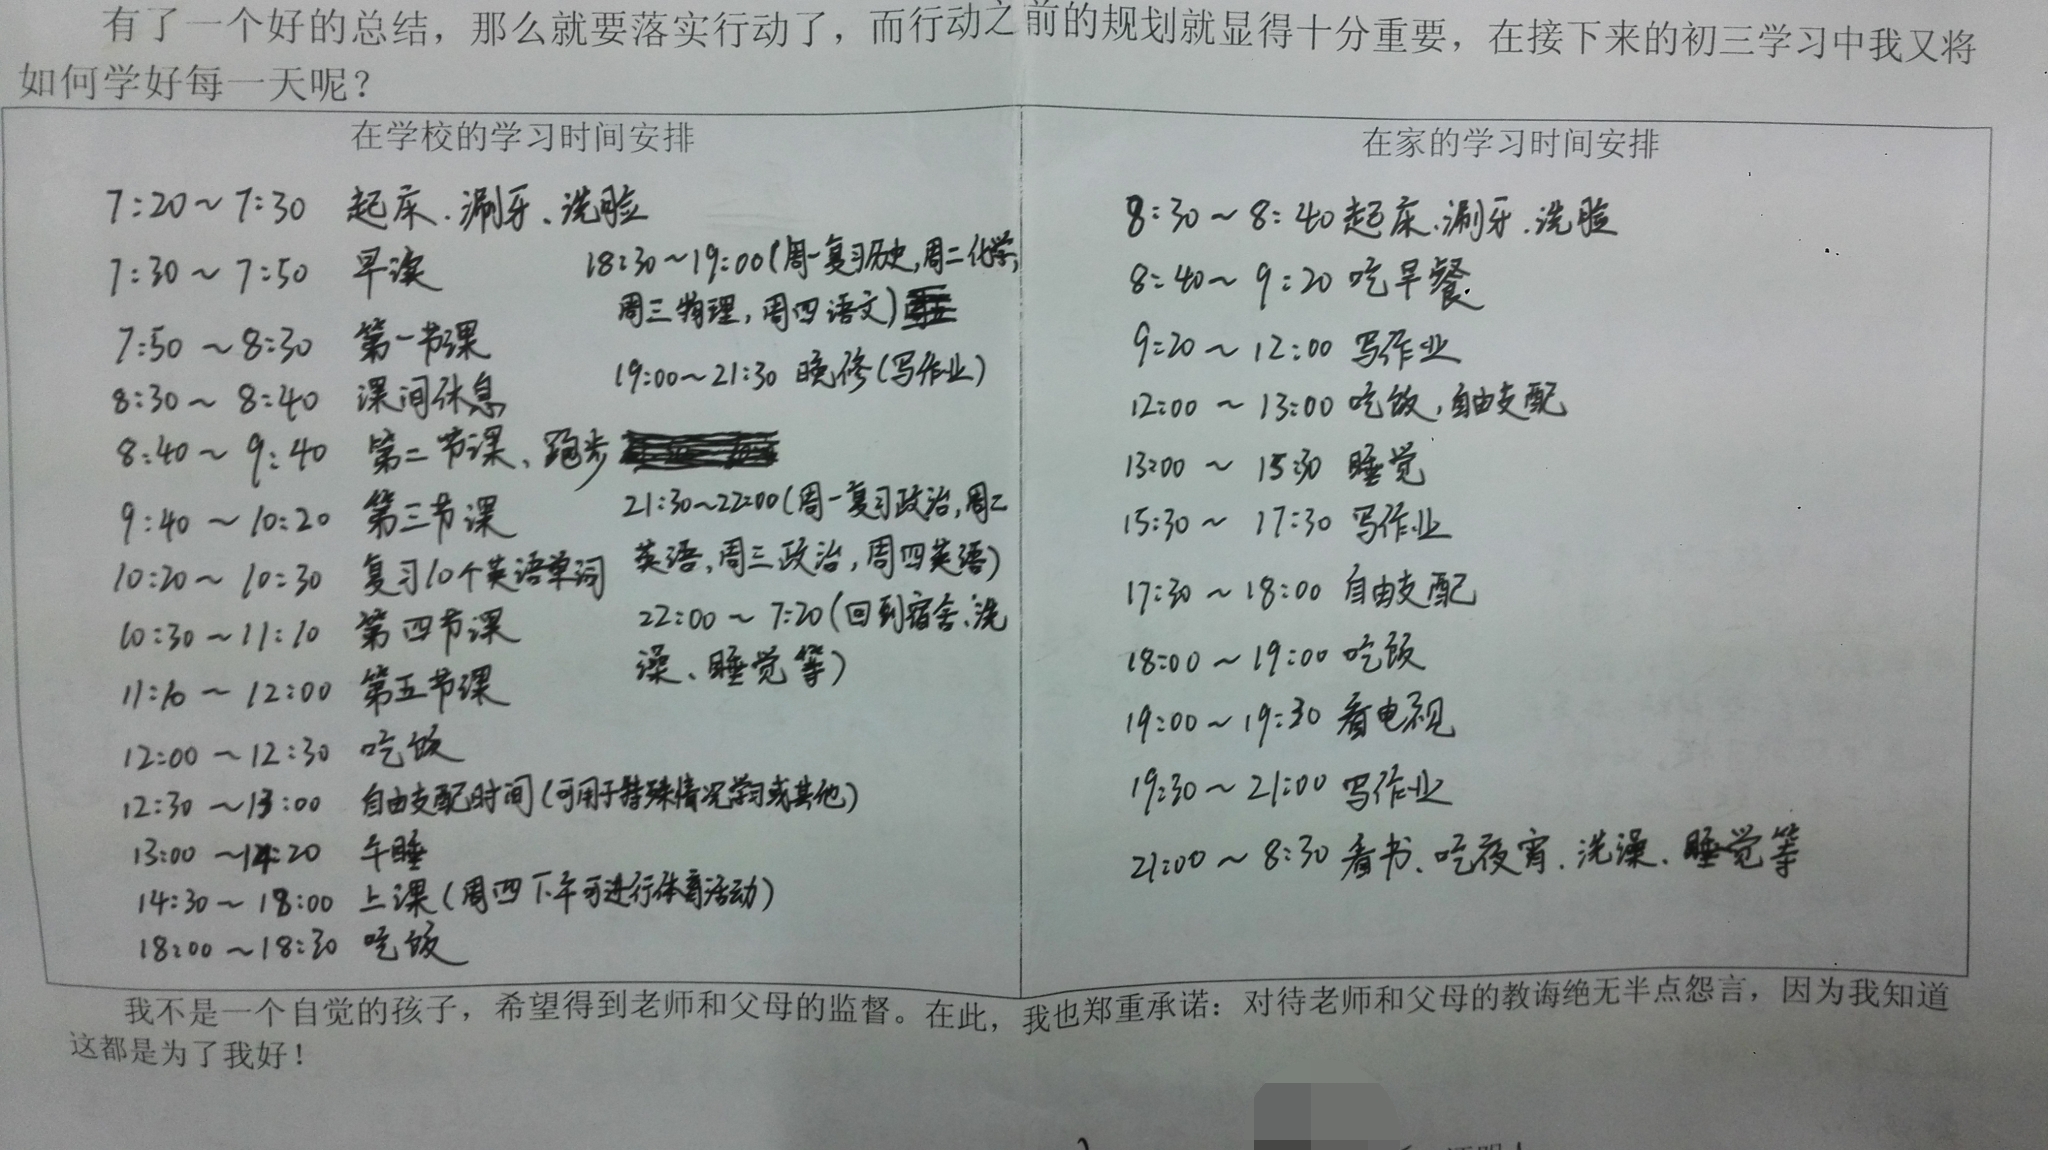 有了一个好的总结，那么就要落实行动了，而行动之前的规划就显得十分重要，在接下来的初三学习中我又将
如何学好每一天呢？
在学校的学习时间安排
7:20～7:30 起床、涮牙、洗脸
7:30～7:50 早读
7:50～8:30 第一节课
8:30～8:40 课间休息
8:40～9:40 第二节课、跑步
9:40～10:20 第三节课
10:20～10:30 复习10个英语单词
10:30～11:10 第四节课
11:10～12:00 第五节课
12:00～12:30 吃饭
12:30～13:00 自由支配时间(可用于特殊情况学习或其他)
13:00～14:20 午睡
14:30～18:00 上课(周四下午可进行体育活动)
18:00～18:30 吃饭
18:30～19:00(周一复习历史,周二化学,
周三物理,周四语文)
19:00～21:30 晚修(写作业)
21:30～22:00(周一复习政治,周二
英语,周三政治,周四英语)
22:00～7:20(回到宿舍、洗
澡、睡觉等)
在家的学习时间安排
8:30～8:40 起床、涮牙、洗脸
8:40～9:20 吃早餐
9:20～12:00 写作业
12:00～13:00 吃饭,自由支配
13:00～15:30 睡觉
15:30～17:30 写作业
17:30～18:00 自由支配
18:00～19:00 吃饭
19:00～19:30 看电视
19:30～21:00 写作业
21:00～8:30 看书、吃夜宵、洗澡、睡觉等
我不是一个自觉的孩子，希望得到老师和父母的监督。在此，我也郑重承诺：对待老师和父母的教诲绝无半点怨言，因为我知道
这都是为了我好！